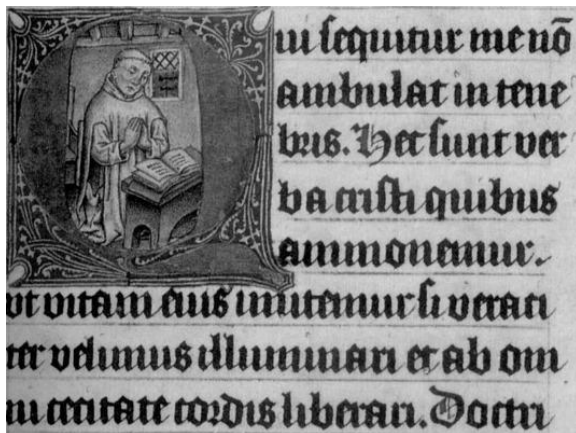 Qui sequitur me nō
ambulat in tene
bris. Hec sunt ver
ba cristi quibus
ammonemur.
vt vitam eius imitemur si veraci
ter velimus illuminari et ab om
ni cecitate cordis liberari. Doctri